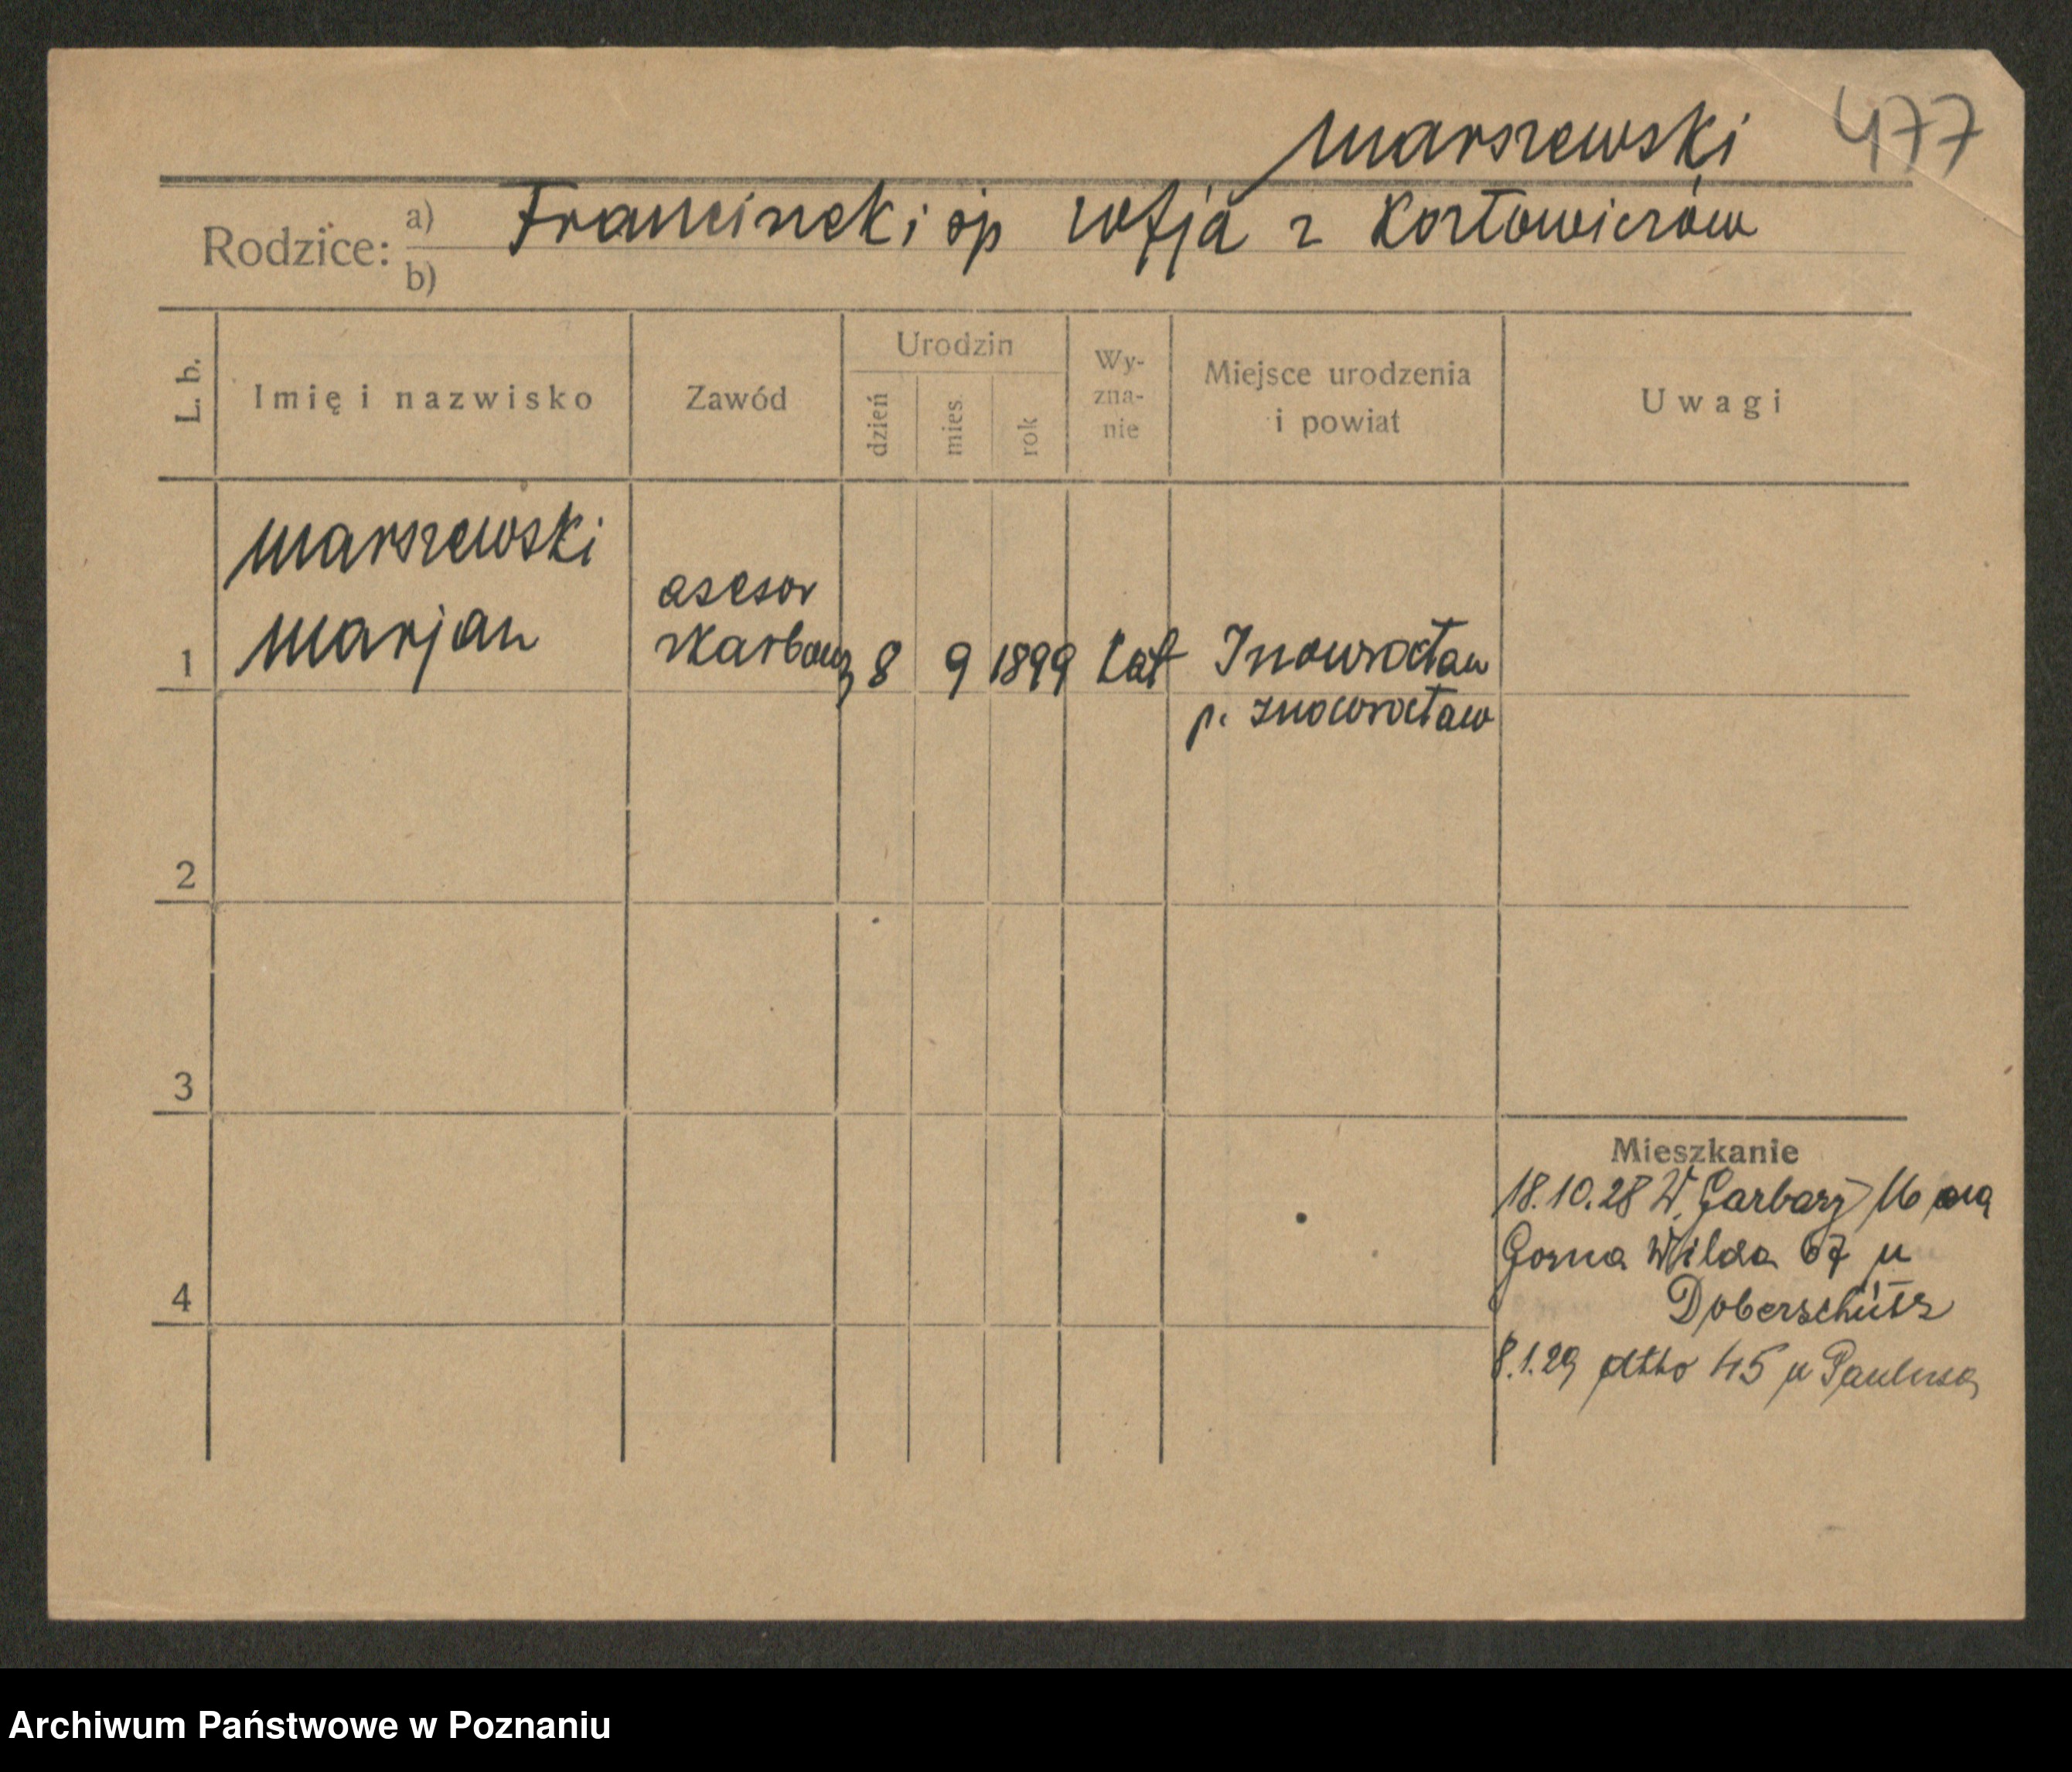 Marszewski 477
Rodzice: a) Franciszek i śp Zofja z Kozłowiczów
b)
L. b. Imię i nazwisko Zawód Urodzin dzień mies. rok Wy-zna-nie Miejsce urodzenia i powiat Uwagi
Marszewski
asesor
1 Marjan skarbowy 8 9 1899 kat Inowrocław
p. Inowrocław
2
3
Mieszkanie
18.10.28 W. Garbary 16
Gorna Wilda 67 u
4 Doberschütz
8.1.29 dtto 45 u Paulusa
Archiwum Państwowe w Poznaniu